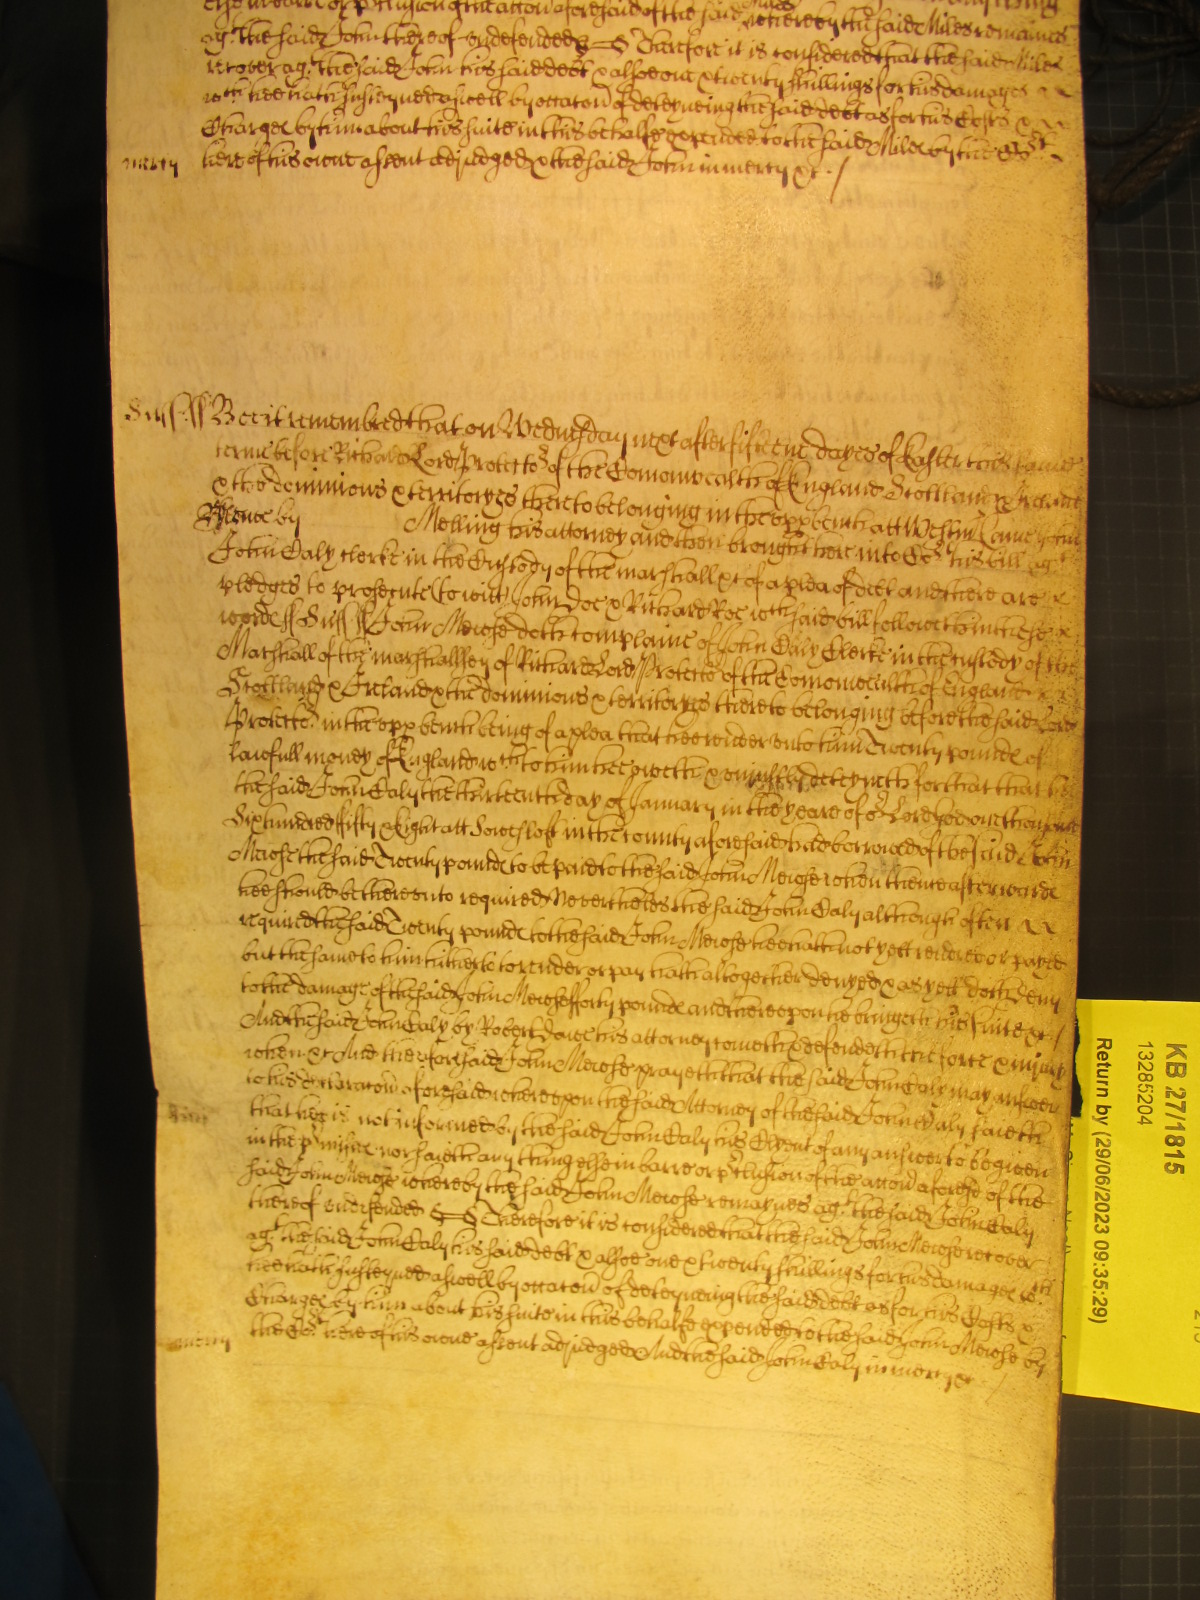 else in barre or p'clusion of the action aforesaid of the said Miles whereby the said Miles remaines
ag.t the said John thereof undefended Therefore it is considered that the said Miles
recover ag.t the said John his said debt & alsoe one & twenty shillings for his damages
w.ch hee hath susteyned aswell by occacon of deteyneing the said debt as for his Costs &
Charges by him about his suite in this behalfe expended to the said Miles by the Co.rt
mercy here of his owne assent adjudged & the said John in mercy &c. /
Suff. ss Bee it remembred that on Wednesday next after fifteene dayes of Easter this same
terme before Richard Lord Protector of the Comonwealth of England Scotland & Ireland
& the dominions & territoryes thereto belonging in the upp bench att Westm. Came John
by Melling his attorney and then brought here into Co.rt his bill ag.t
John Caly Clerke in the Custody of the marshall &c of a plea of debt and there are
pledges to prosecute (to witt) John Doe & Richard Roe w.ch said bill followeth in these
words ss Suff ss John Mewse doth complaine of John Caly Clerke in the custody of the
Marshall of the marshallsey of Richard Lord Protector of the Comonwealth of England
Scotland & Ireland & the dominions & territoryes thereto belonging before the said Lord
Protector in the upp bench being of a plea that hee render unto him Twenty pounds of
lawfull money of England w.ch to him hee oweth & uniustly deteyneth for that that
the said John Caly the thirteenth day of January in the yeare of o.r Lord God one thousand
Six hundred fifty & Eight att Lowestoft in the county aforesaid had borrowed of the said John
Mewse the said Twenty pounds to be paid to the said John Mewse when thenceafterwards
hee should be thereunto required Neverthelesse the said John Caly although often
required the said Twenty pounds to the said John Mewse hee hath not yett rendred or payed
but the same to him hitherto to render or pay hath altogether denyed & as yett doth deny
to the damage of the said John Mewse fforty pounds and thereupon he bringeth his suite &c /
And the said John Caly by Robert Dove his attorney cometh & defendeth the force & injury
when &c And the aforesaid John Mewse prayeth that the said John Caly may answer
to his declaracon aforesaid whereupon the said Attorney of the said John Caly saieth
that hee is not informed by the said John Caly his Clyent of any answer to be given
in the p'misses nor saieth any thing else in barre or p'clusion of the accon aforesd of the
said John Mewse whereby the said John Mewse remaynes ag.t the said John Caly
thereof undefended Therefore it is considered that the said John Mewse recover
ag.t the said John Caly his said debt & alsoe one & twenty shillings for his damages w.ch
hee hath susteyned aswell by occacon of deteyneing the said debt as for his Costs &
Charges by him about his suite in this behalfe expended to the said John Mewse by
mercy the Co.rt here of his owne assent adjudged And the said John Caly in mercy &c /
KB 27/1815
13285204
Return by (29/06/2023 09:35:29)